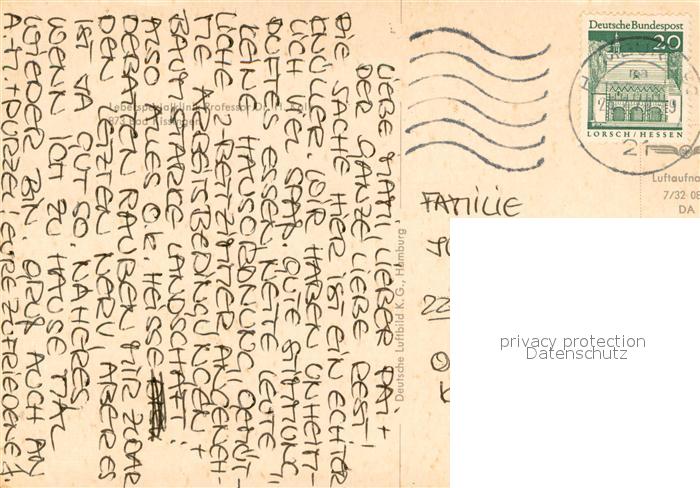 LIEBE MAMI, LIEBER PAT +
DER GANZE, LIEBE REST!
DIE SACHE HIER IST EIN ECHTER
KNÜLLER. WIR HABEN UNHEIM-
LICH VIEL SPAß. GUTE STIMMUNG,
DUFTES ESSEN, NETTE LEUTE,
KEINE HAUSORDNUNG, GEMÜT-
LICHE 2-BETTZIMMER, ANGENEH-
ME ARBEITSBEDINGUNGEN +
BAUMSTARKE LANDSCHAFT:
ALSO ALLES O.K. HEISSE
DEBATTEN RAUBEN MIR ZWAR
DEN LETZTEN NERV, ABER ES
IST JA GUT SO. NÄHERES
WENN ICH ZU HAUSE MAL
WIEDER BIN. GRUß AUCH AN
A.M. + PURZEL! EURE ZUFRIEDENE A.
Lebetspezialklinik Professor Dr. H.
873 Bad Kissingen
Deutsche Luftbild K.G., Hamburg
Deutsche Bundespost
20
LORSCH/HESSEN
21
Luftaufna
7/32 08
DA
FAMILIE
22
privacy protection
Datenschutz